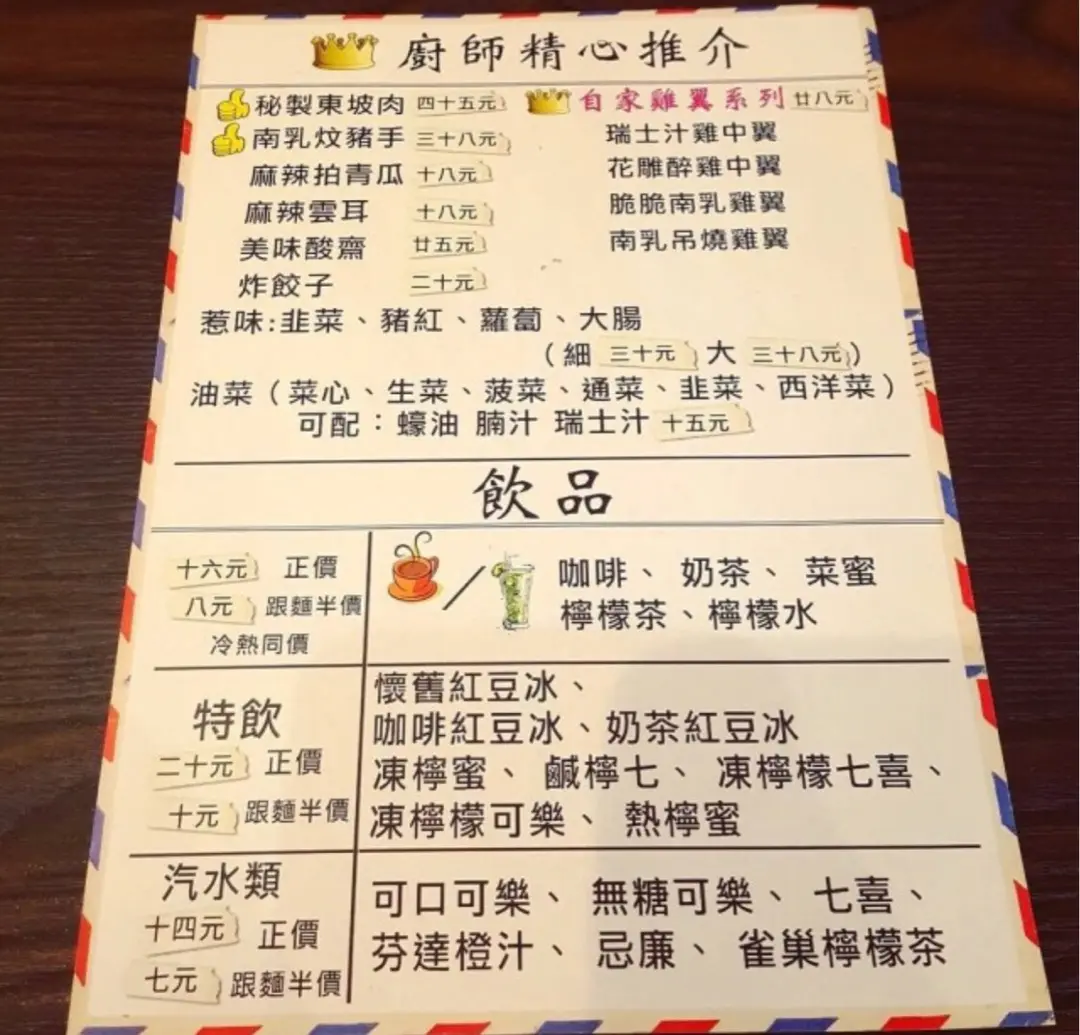 廚師精心推介
秘製東坡肉 四十五元
南乳炆豬手 三十八元
麻辣拍青瓜 十八元
麻辣雲耳 十八元
美味酸齋 廿五元
炸餃子 二十元
自家雞翼系列 廿八元
瑞士汁雞中翼
花雕醉雞中翼
脆脆南乳雞翼
南乳吊燒雞翼
惹味:韭菜、豬紅、蘿蔔、大腸
(細 三十元 大 三十八元)
油菜(菜心、生菜、菠菜、通菜、韭菜、西洋菜)
可配:蠔油 腩汁 瑞士汁 十五元
飲品
十六元 正價
八元 跟麵半價
冷熱同價
咖啡、奶茶、菜蜜
檸檬茶、檸檬水
特飲
二十元 正價
十元 跟麵半價
懷舊紅豆冰、
咖啡紅豆冰、奶茶紅豆冰
凍檸蜜、鹹檸七、凍檸檬七喜、
凍檸檬可樂、熱檸蜜
汽水類
十四元 正價
七元 跟麵半價
可口可樂、無糖可樂、七喜、
芬達橙汁、忌廉、雀巢檸檬茶